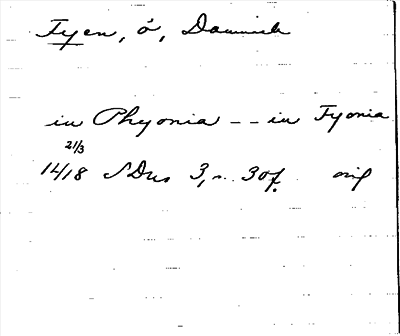 Fyen, ö, Danmark
in Phyonia -- in Fyonia
21/3
14/18 SDns 3, n. 30f. orig